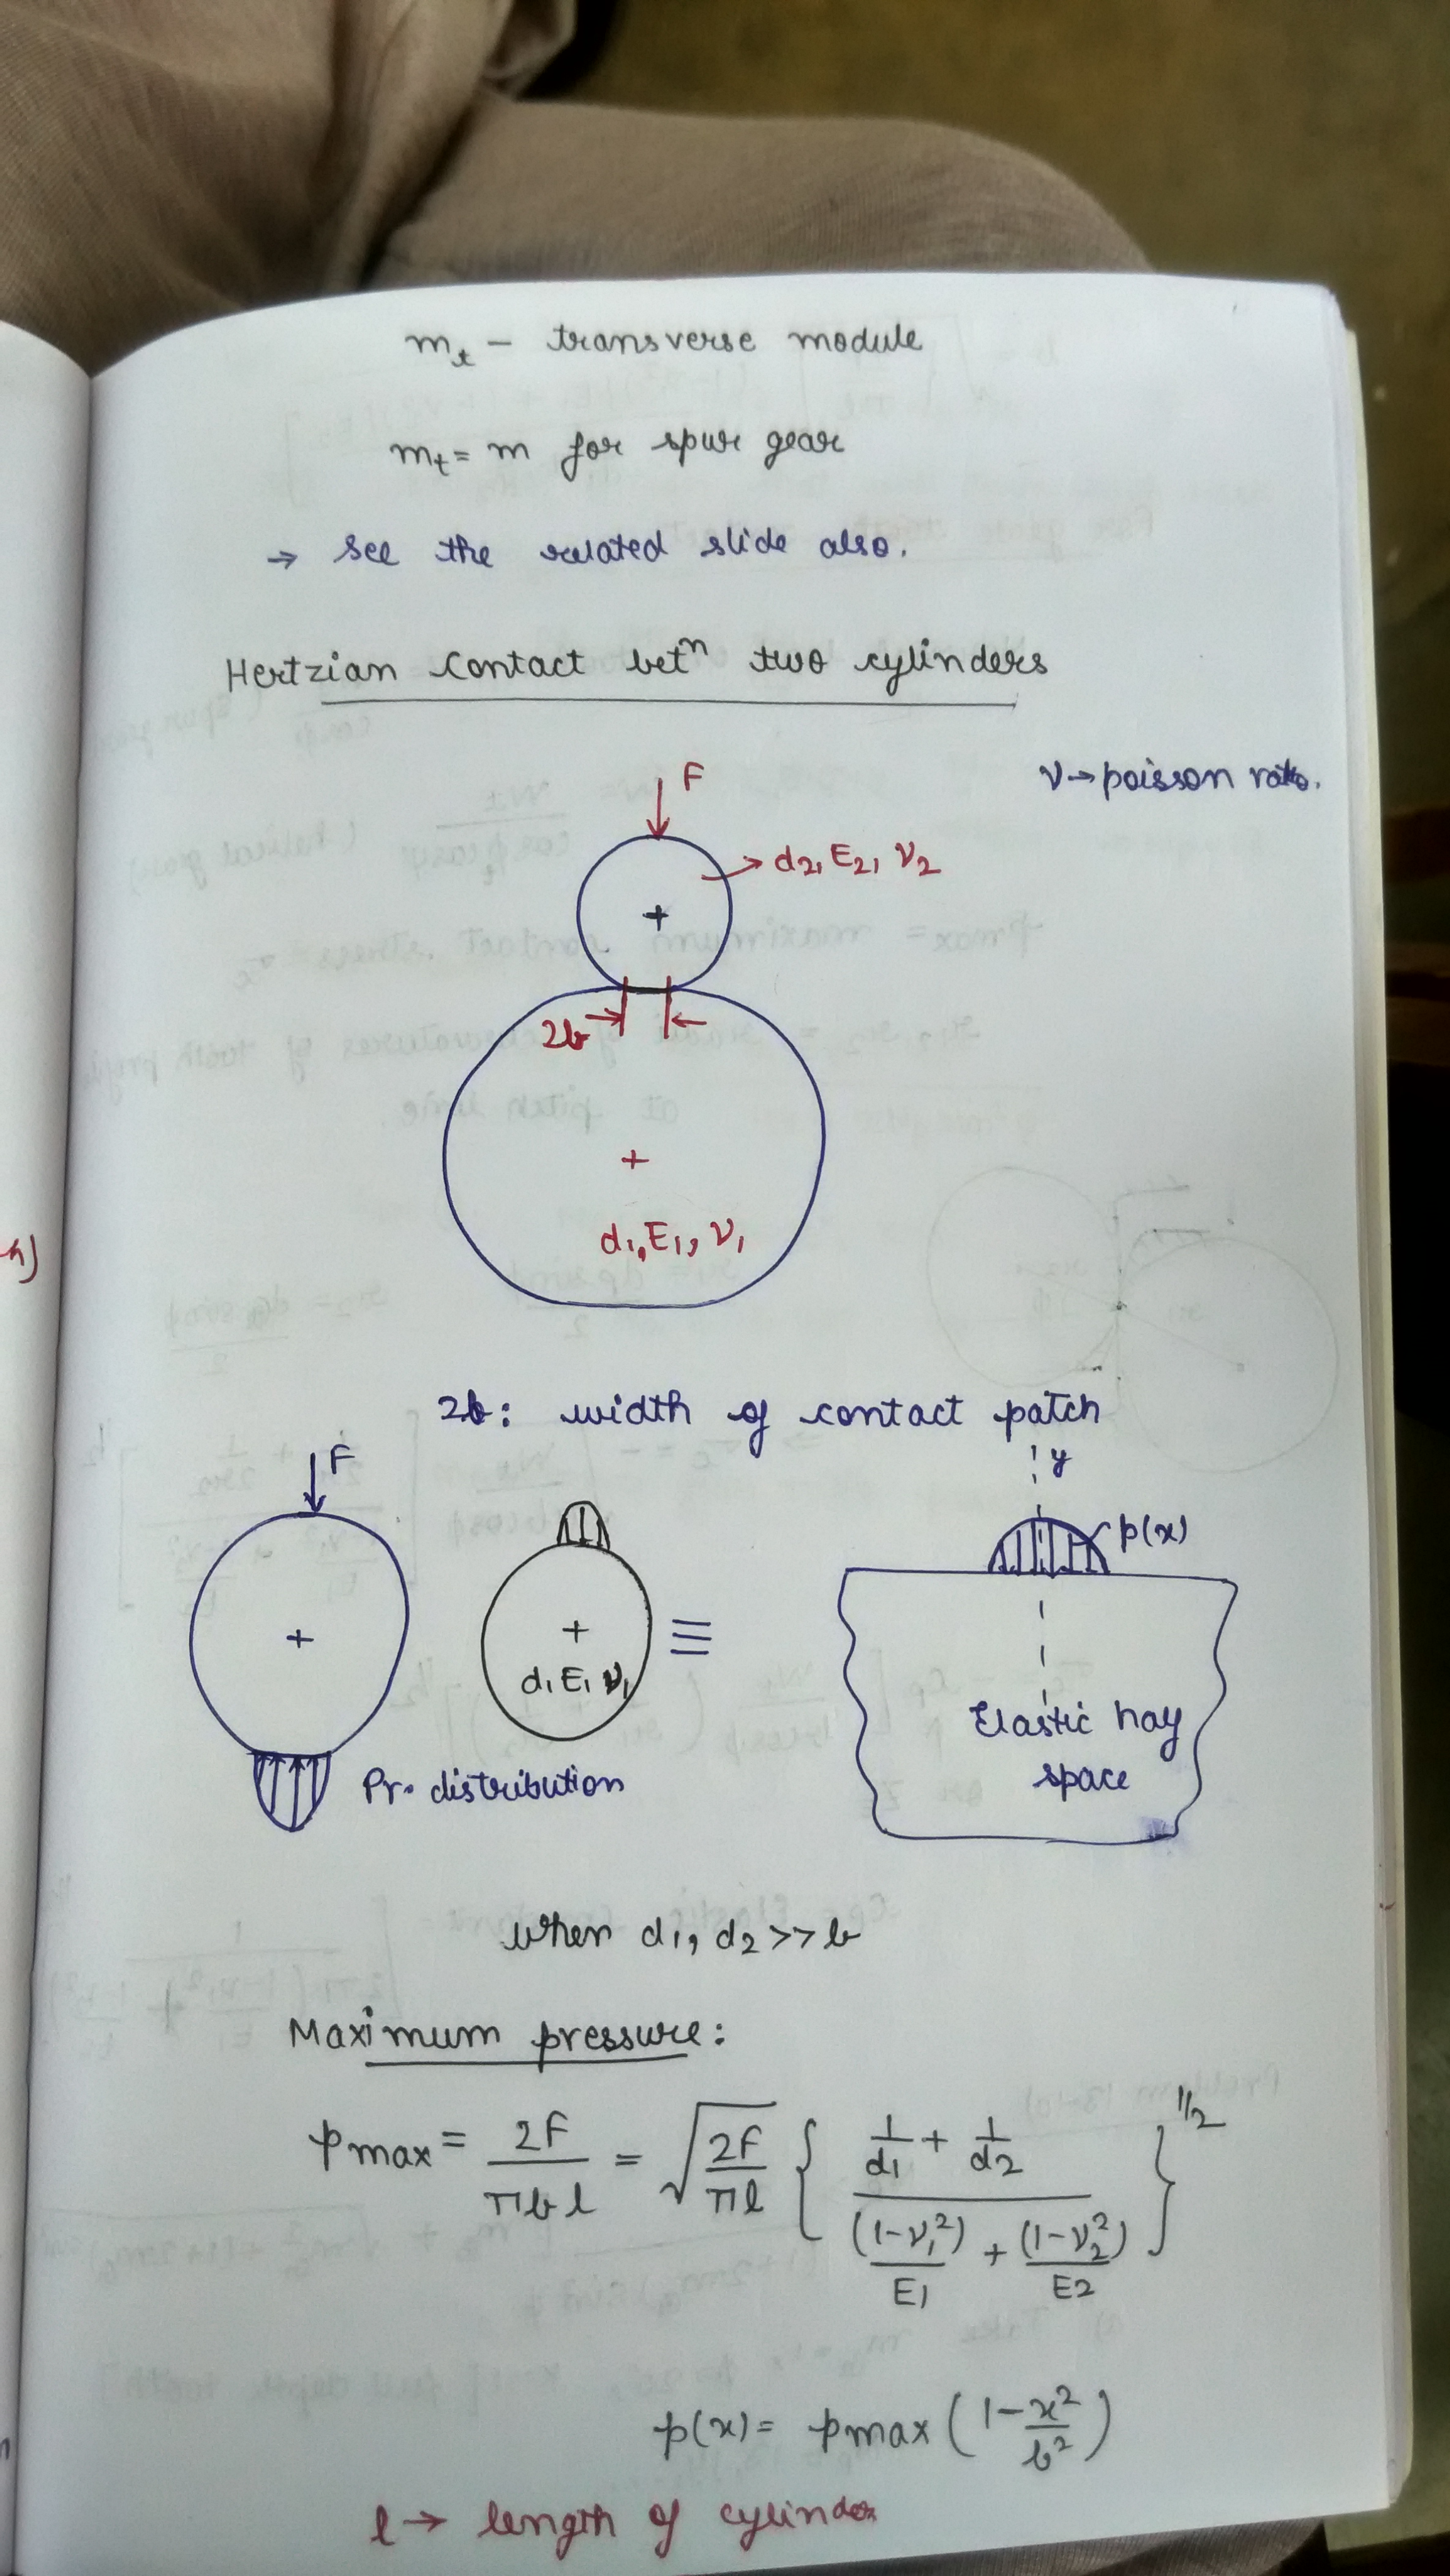 m_t – transverse module
m_t = m for spur gear
→ see the related slide also.
Hertzian contact betⁿ two cylinders
ν→poisson ratio.
F
d2, E2, ν2
2b
+
d1, E1, ν1
2b: width of contact patch
F
y
p(x)
d1 E1 ν1
≡
Elastic hay space
Pr. distribution
when d1, d2 >> b
Maximum pressure:
pmax = 2F/πbl = √(2F/πl) { (1/d1 + 1/d2) / ((1-ν1²)/E1 + (1-ν2²)/E2) }^1/2
p(x) = pmax (1 - x²/b²)
l → length of cylinder